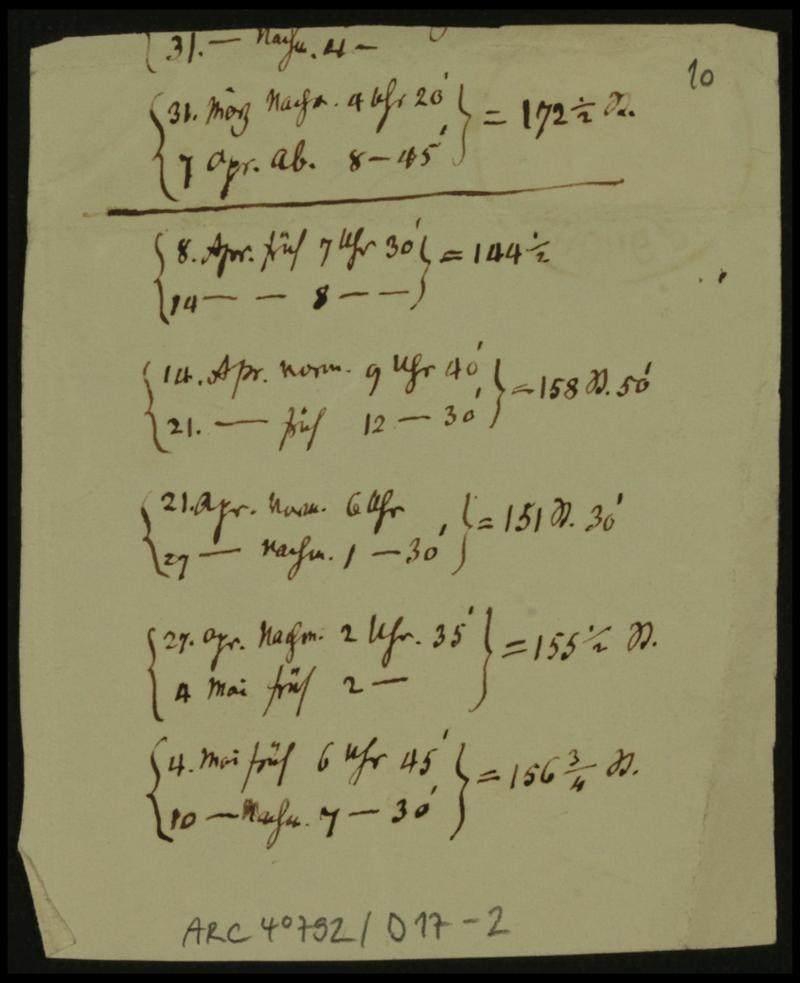 31. — Nachm. 4 —
10
31. März Nachm. 4 Uhr 20' = 172 ½ St.
7 Apr. Ab. 8 — 45'
8. Apr. früh 7 Uhr 30' = 144 ½
14 — — 8 — —
14. Apr. Vorm. 9 Uhr 40' = 158 St. 50'
21. — früh 12 — 30'
21. Apr. Vorm. 6 Uhr = 151 St. 30'
27 — Nachm. 1 — 30'
27. Apr. Nachm. 2 Uhr. 35' = 155 ½ St.
4 Mai früh 2 —
4. Mai früh 6 Uhr 45' = 156 ¾ St.
10 — Nachm. 7 — 30'
ARC 4°792/D17-2